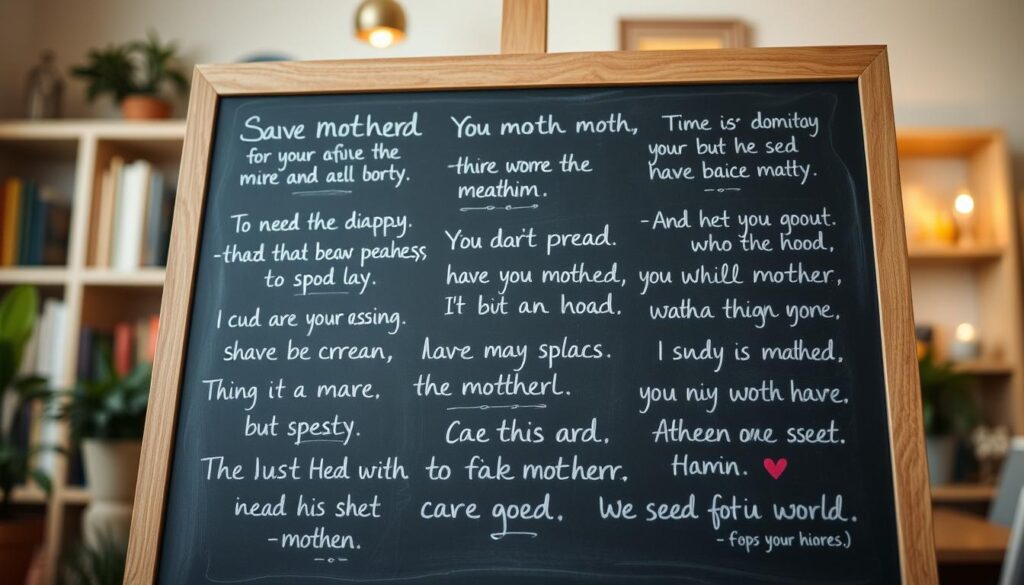 Sauve motherd
for your afiue the
mire and aell borty.
To need the diappy.
-thad that beaw peahess
to spod lay.
I cud are your assing.
shave be crrean,
Thing it a mare,
but spesty.
The lust Hed with
nead his shet
-mothen.
You moth moth,
-thire worre the
meathim.
You dar't pread.
have you mothed,
I't bit an hoad.
Aave may splacs.
the mottherl.
Cae this ard,
to fake motherr.
care goed.
Time is domitay
your but he sed
have baice matty.
-And het you goout.
who the hood,
you whill mother,
watha thign yone,
I sudy is mathed,
you niy woth have,
Atheen one sseet.
Hamin.
We seed fotiu world.
- fops your hiores.)